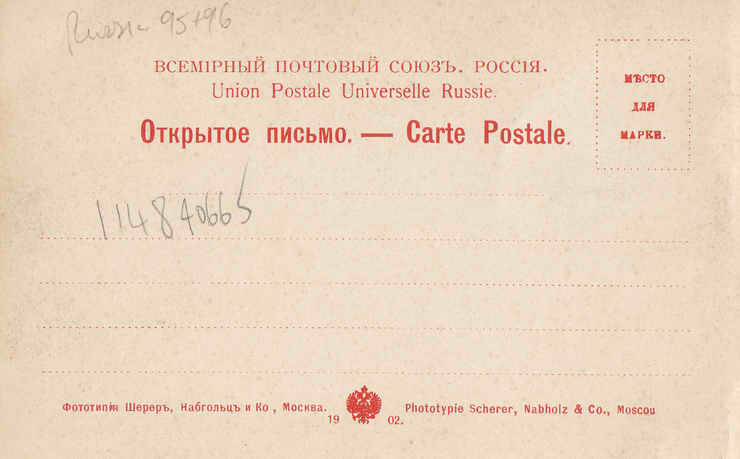 Russia 95+96
ВСЕМІРНЫЙ ПОЧТОВЫЙ СОЮЗЪ. РОССІЯ.
Union Postale Universelle Russie.
Открытое письмо. — Carte Postale.
МѢСТО
ДЛЯ
МАРКИ.
114840665
Фототипія Шереръ, Набгольцъ и Ко, Москва.
Phototypie Scherer, Nabholz & Co., Moscou
1902.